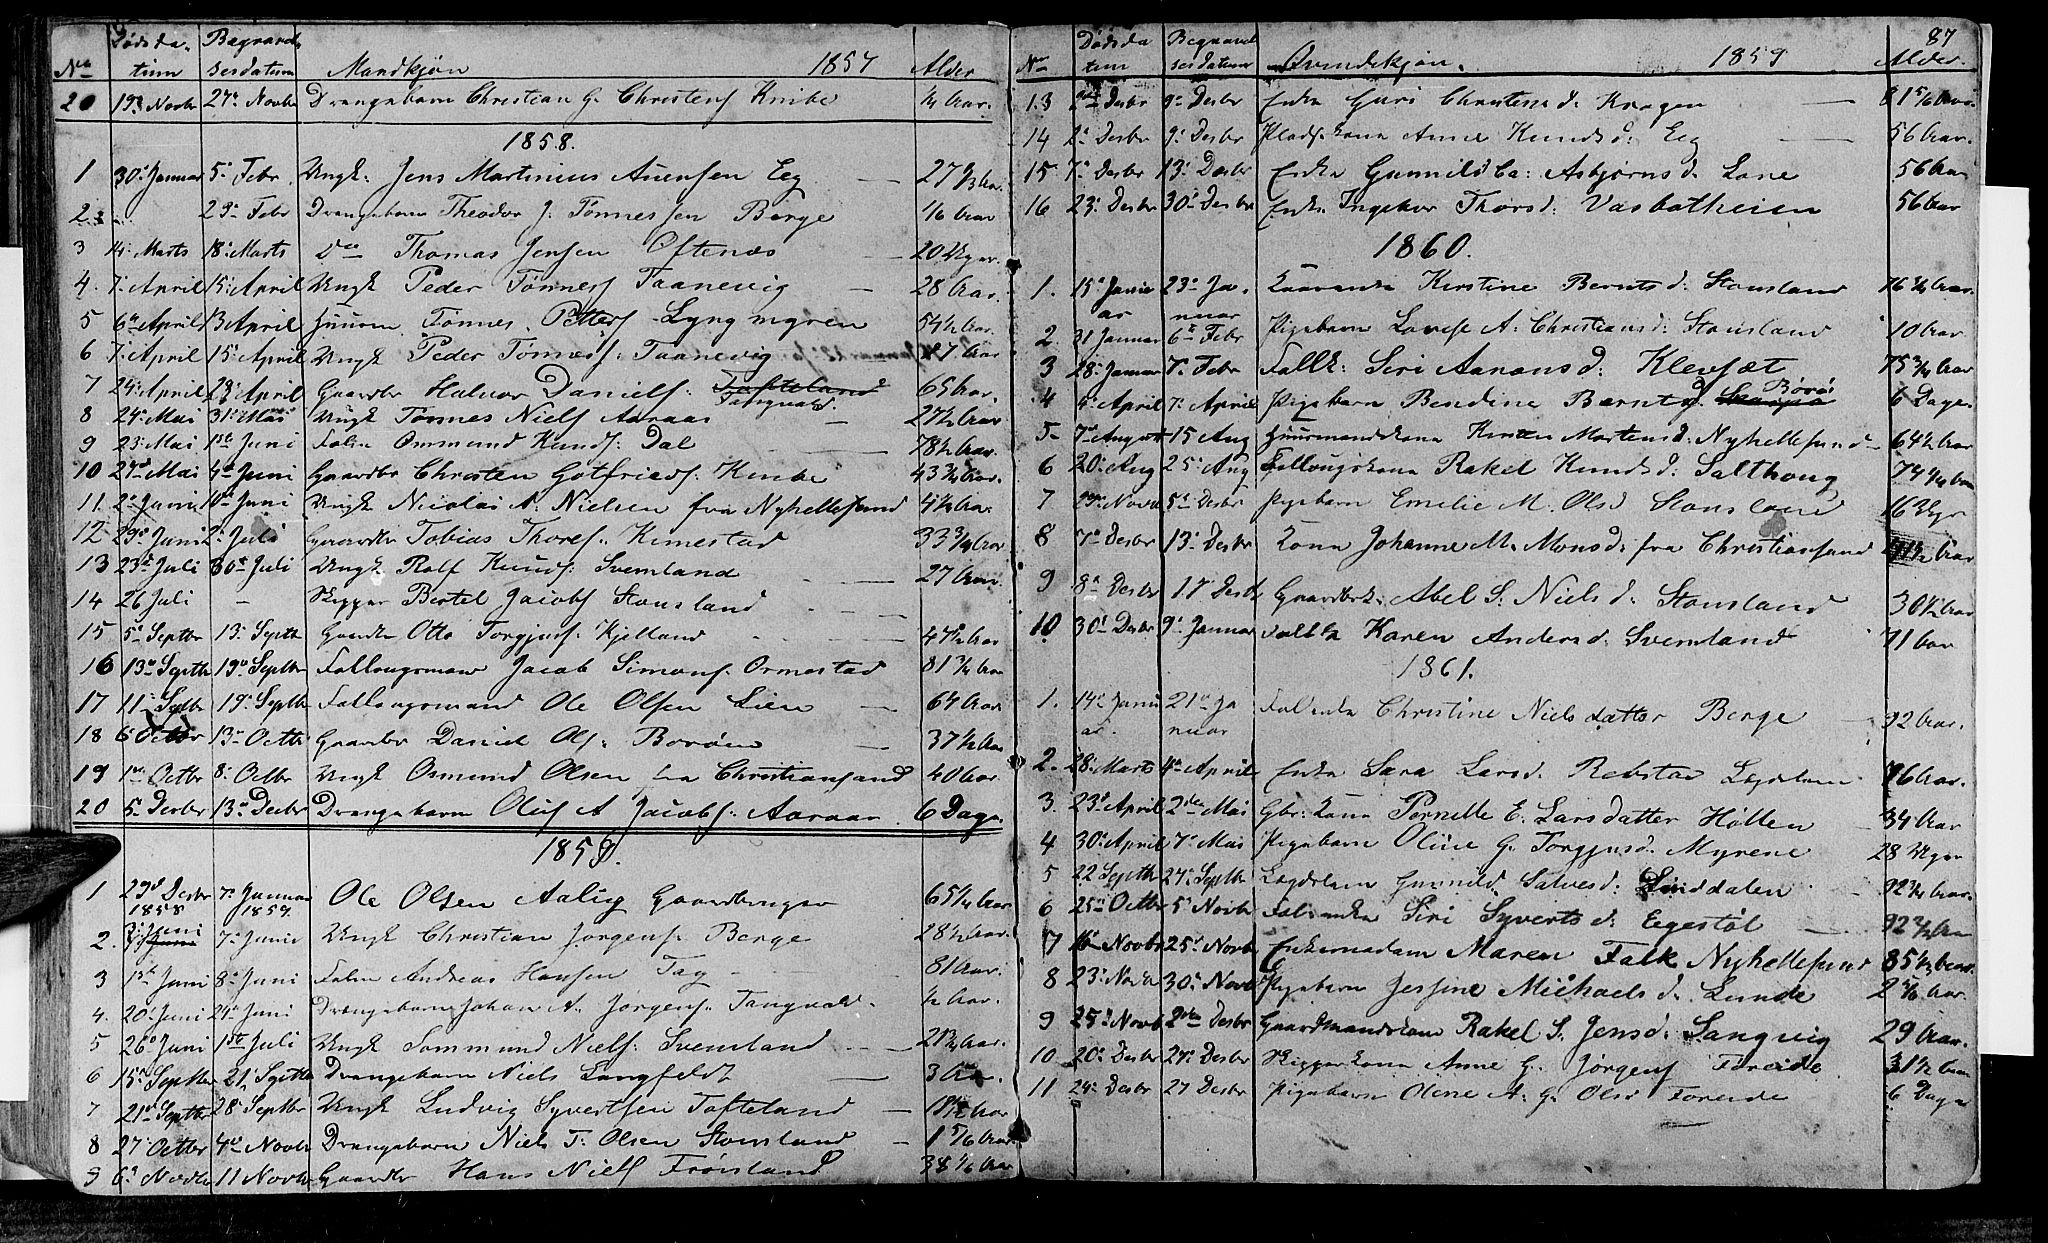 No
Dødsda-
tum
Begravel-
sesdatum
Mandkjøn
1857
Alder
20 19de Novbr 27de Novbr Drengebarn Christian G. Christens Knibe ¼ Aar.
1858.
1 30. Januar 5. Febr. Ungk. Jens Martinius Auensen Eg 27 ⅓ Aar.
2. 23. Febr Drengebarn Theodor J. Tønnessen Berge 1/6 Aar
3 14. Marts 18. Marts Do Thomas Jensen Oftenæs 20 Uger.
4. 7. April 15. April Ungk Peder Tønnes Taanevig 28 Aar.
5 6. April 13 April Tønnes Petters Lyngmyren 54½ Aar.
6 7. April 15. April Ungk Peder Tønness. Taanevig
7 24. April 28. April Gaardbr Halvor Daniels. Tofteland Tangvald 65 Aar.
8 24. Mai 31. Mai Ungk Tønnes Niels Aaraas 27½ Aar
9 23. Mai 1ste Juni Ommund Knuds. Dal 78½ Aar.
10 27de Mai 4de Juni Gaardbr Christen Gotfrieds. Knibe 43 ¾ Aar.
11. 2. Juni 10de Juni Ungk Nicolai A. Nielsen fra Nyhellesund
12 29. Juni 2. Juli Gaardbr Tobias Thores. Kimestad 33 ¾ Aar
13 23de Juli 30te Juli Ungk Rolf Knuds. Svemland 27 Aar
14 26 Juli - Skipper Bertel Jacobs Stousland
15 5. Septbr 13. Septb Otto Torgjus. Kjelland 47½ Aar
16 13. Septb 19. Septbr Follougsmand Jacob Simons. Ormestad 81 ¾ Aar
17 11. Septb 19. Septbr Follougsmand Ole Olsen Lien 64 Aar.
18 6 Octbr 13. Octbr Gaardbr Daniel Ols. Borøen 37½ Aar
19 1ste Octbr 8. Octbr Ungk Osmund Olsen fra Christiansand 40 Aar.
20 5. Decbr 13. Decbr Drengebarn Oluf A Jacobs. Aaraas 6 Dage
1859.
1 29de Desbr 1858 7. Januar 1859. Ole Olsen Aalig Gaardbruger 65 ¼ Aar
2. 2. Juni 7. Juni Ungk Christian Jørgens. Berge 28½ Aar.
3 1ste Juni 8. Juni Andreas Hansen Tag 81 Aar.
4. 20 Juni 24. Juni Drengebarn Johan A. Jørgens. Tangvald. ½ Aar.
5 26. Juni 1ste Juli Ungk Sommund Niels. Svemland
6 15. Septbr 21. Septbr Drengebarn Niels Langfeldt 3 Aar.
7 21. Septbr 28. Septbr Ungk Ludvig Syvertsen Tofteland 18½ Aar
8 27. Octbr 4de Novbr Drengebarn Niels T. Olsen Stousland 1 5/6 Aar.
9 6. Novbr 11 Novbr Gaardbr Hans Niels Frøisland 38 1/6 Aar
87
No
Dødsda-
tum
Begravel-
sesdatum
Qvindekjøn.
1859
Alder.
13 9. Desbr Enke Guri Christensd. Kragen 81 5/6 Aar
14 2. Desbr 9. Desbr Pladsk.kone Anne Knudsd. Eeg 56 Aar.
15 7. Desbr 13. Desbr Enke Gunnild Asbjørnsd. Lone 56 Aar
16 23. Desbr 30. Desbr Enke Ingebor Thorsd. Vasbotheien 56 Aar
1860.
1. 15. Januar 23. Januar Kaarenke Kirstine Berntsd. Stousland 76 ¾ Aar.
2. 31 Januar 6te Febr Pigebarn Lovise A. Christiansd. Stousland 10 Aar.
3 28. Januar 7. Febr Falk. Siri Aaronsd. Klepsæt 75 ¾ Aar
4 April 7. April Pigebarn Bendine Berntsd. Borøe 6 Dage.
5- 7de August 15 Aug Huusmandskone Kirsten Mortensd. Nyhellesund 64½ Aar
6 20. Aug 25. Aug Follougskone Rakel Knudsd. Salthoug 74 ¼ Aar
7 29. Novbr 5. Desbr Pigebarn Emelie M. Olsd Stousland 16 Uger
8 7. Desbr 13. Desbr Kone Johanne M. Monsd. fra Christiansund
9 8. Desbr 17 Desbr Gaardbrk. Abel S. Nielsd. Stousland 30½ Aar
10 30. Desbr 9. Januar Karen Andersd. Svemland 71 Aar
1861.
1. 14. Januar 21. Januar Christine Nielsdatter Berge 92 Aar.
2. 28. Marts 4. April Enke Sara Larsd. Rebstad Lægdslem 76 Aar.
3. 23. April 2den Mai Gbr. Kone Pernelle E. Larsdatter Holten 34 Aar
4 30. April 7. Mai Pigebarn Oline G. Torgjusd. Myrene 28 Uger
5 22 Septbr 27. Septbr Lægdslem Gunild Salvesd. Linddalen 92 ¾ Aar.
6 25. Octbr 5. Novbr Siri Syvertsd. Eegestøl
7 16. Novbr 25. Novbr Enkemadam Maren Falk Nyhellesund
8 23. Novbr 30. Novbr Pigebarn Jessine Michaelsd. Lunde 2 5/6 Aar.
9 25. Novbr 2den Desbr Gaardmandskone Rakel S. Jensd. Langvig 29 Aar.
10 20. Desbr 27. Desbr Skipperkone Anne G. Jørgens Føreide 31½ Aar
11 24. Desbr 27 Desbr Pigebarn Olene A. G. Olsd Foreide 6 Dage